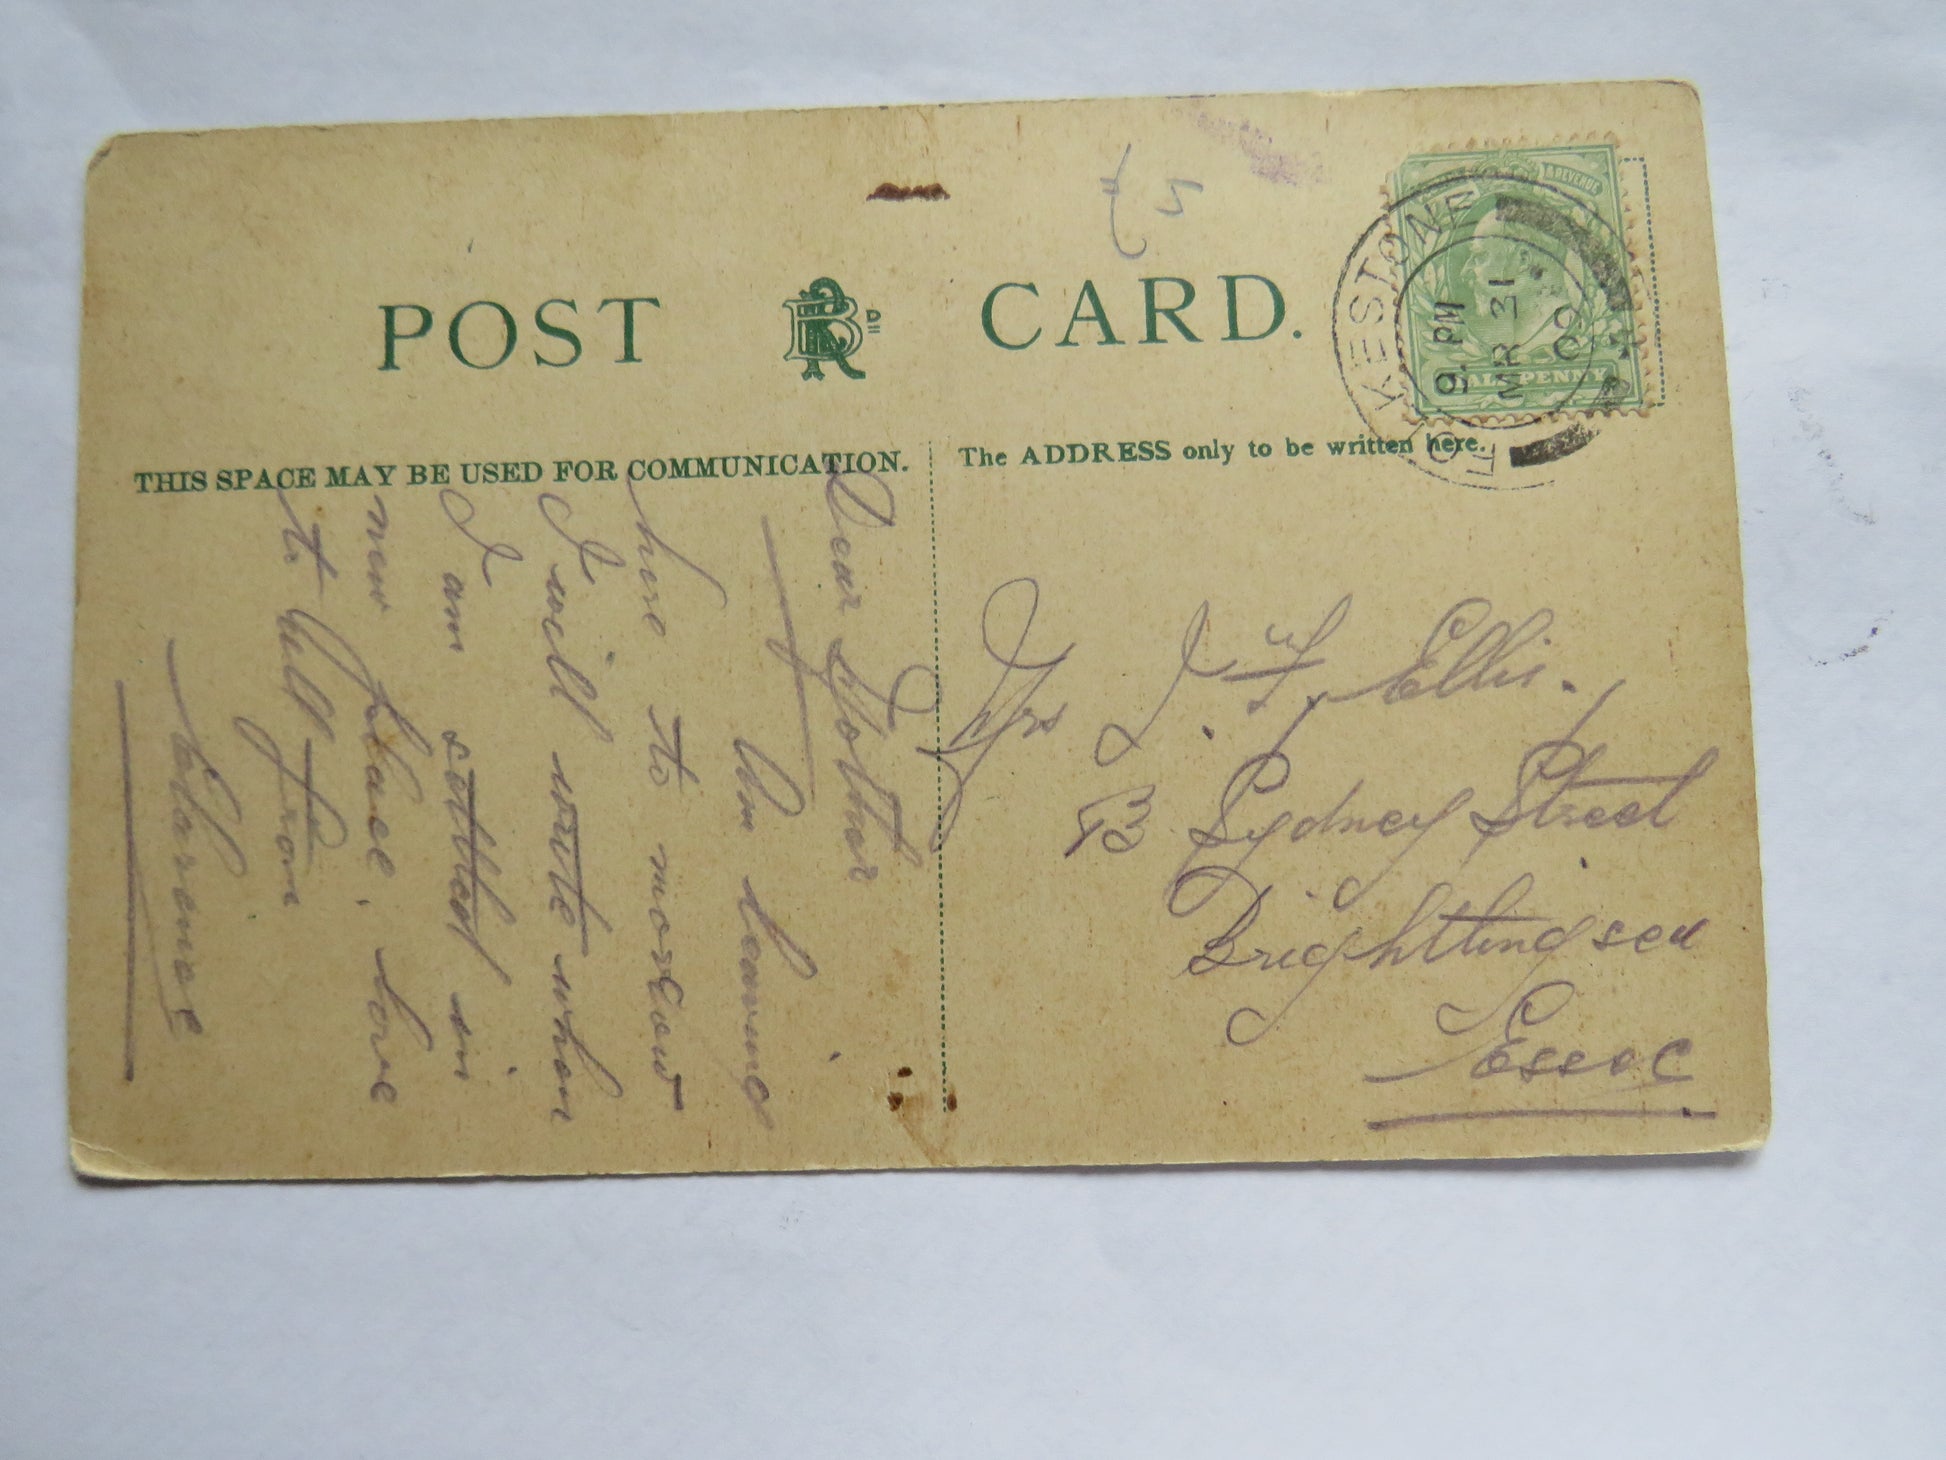 POST CARD.
RD
THIS SPACE MAY BE USED FOR COMMUNICATION.
The ADDRESS only to be written here.
& REVENUE
HALFPENNY
FOLKESTONE
9. PM
MR 31
09
Dear Mother
Am leaving
here to morrow
I will write when
I am settled in
new place. love
to all from
Clarence
Mrs J. F. Ellis.
Sydney Street
Brightlingsea
Essex